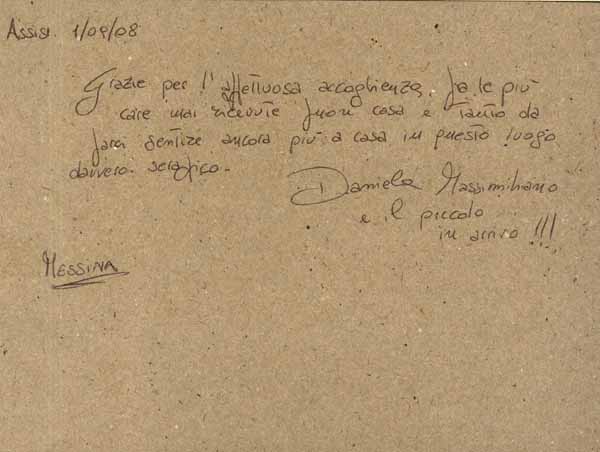 Assisi 1/09/08
Grazie per l'affettuosa accoglienza, fra le più
care mai ricevute fuori casa e tanto da
farci sentire ancora più a casa in questo luogo
davvero serafico.
Daniela Massimiliano
e il piccolo
in arrivo !!!
MESSINA